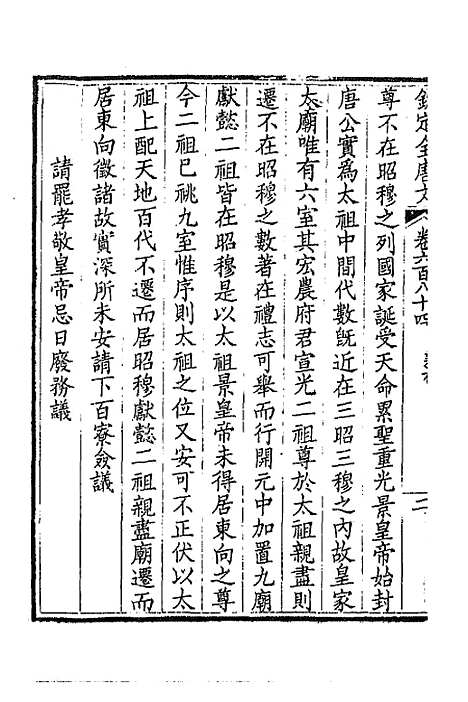 欽定全唐文 卷六百八十四
尊不在昭穆之列國家誕受天命累聖重光景皇帝始封
唐公實爲太祖中間代數既近在三昭三穆之內故皇家
太廟唯有六室其宏農府君宣光二祖尊於太祖親盡則
遷不在昭穆之數著在禮志可舉而行開元中加置九廟
獻懿二祖皆在昭穆是以太祖景皇帝未得居東向之尊
今二祖巳祧九室惟序則太祖之位又安可不正伏以太
祖上配天地百代不遷而居昭穆獻懿二祖親盡廟遷而
居東向徵諸故實深所未安請下百寮僉議
請罷孝敬皇帝忌日廢務議